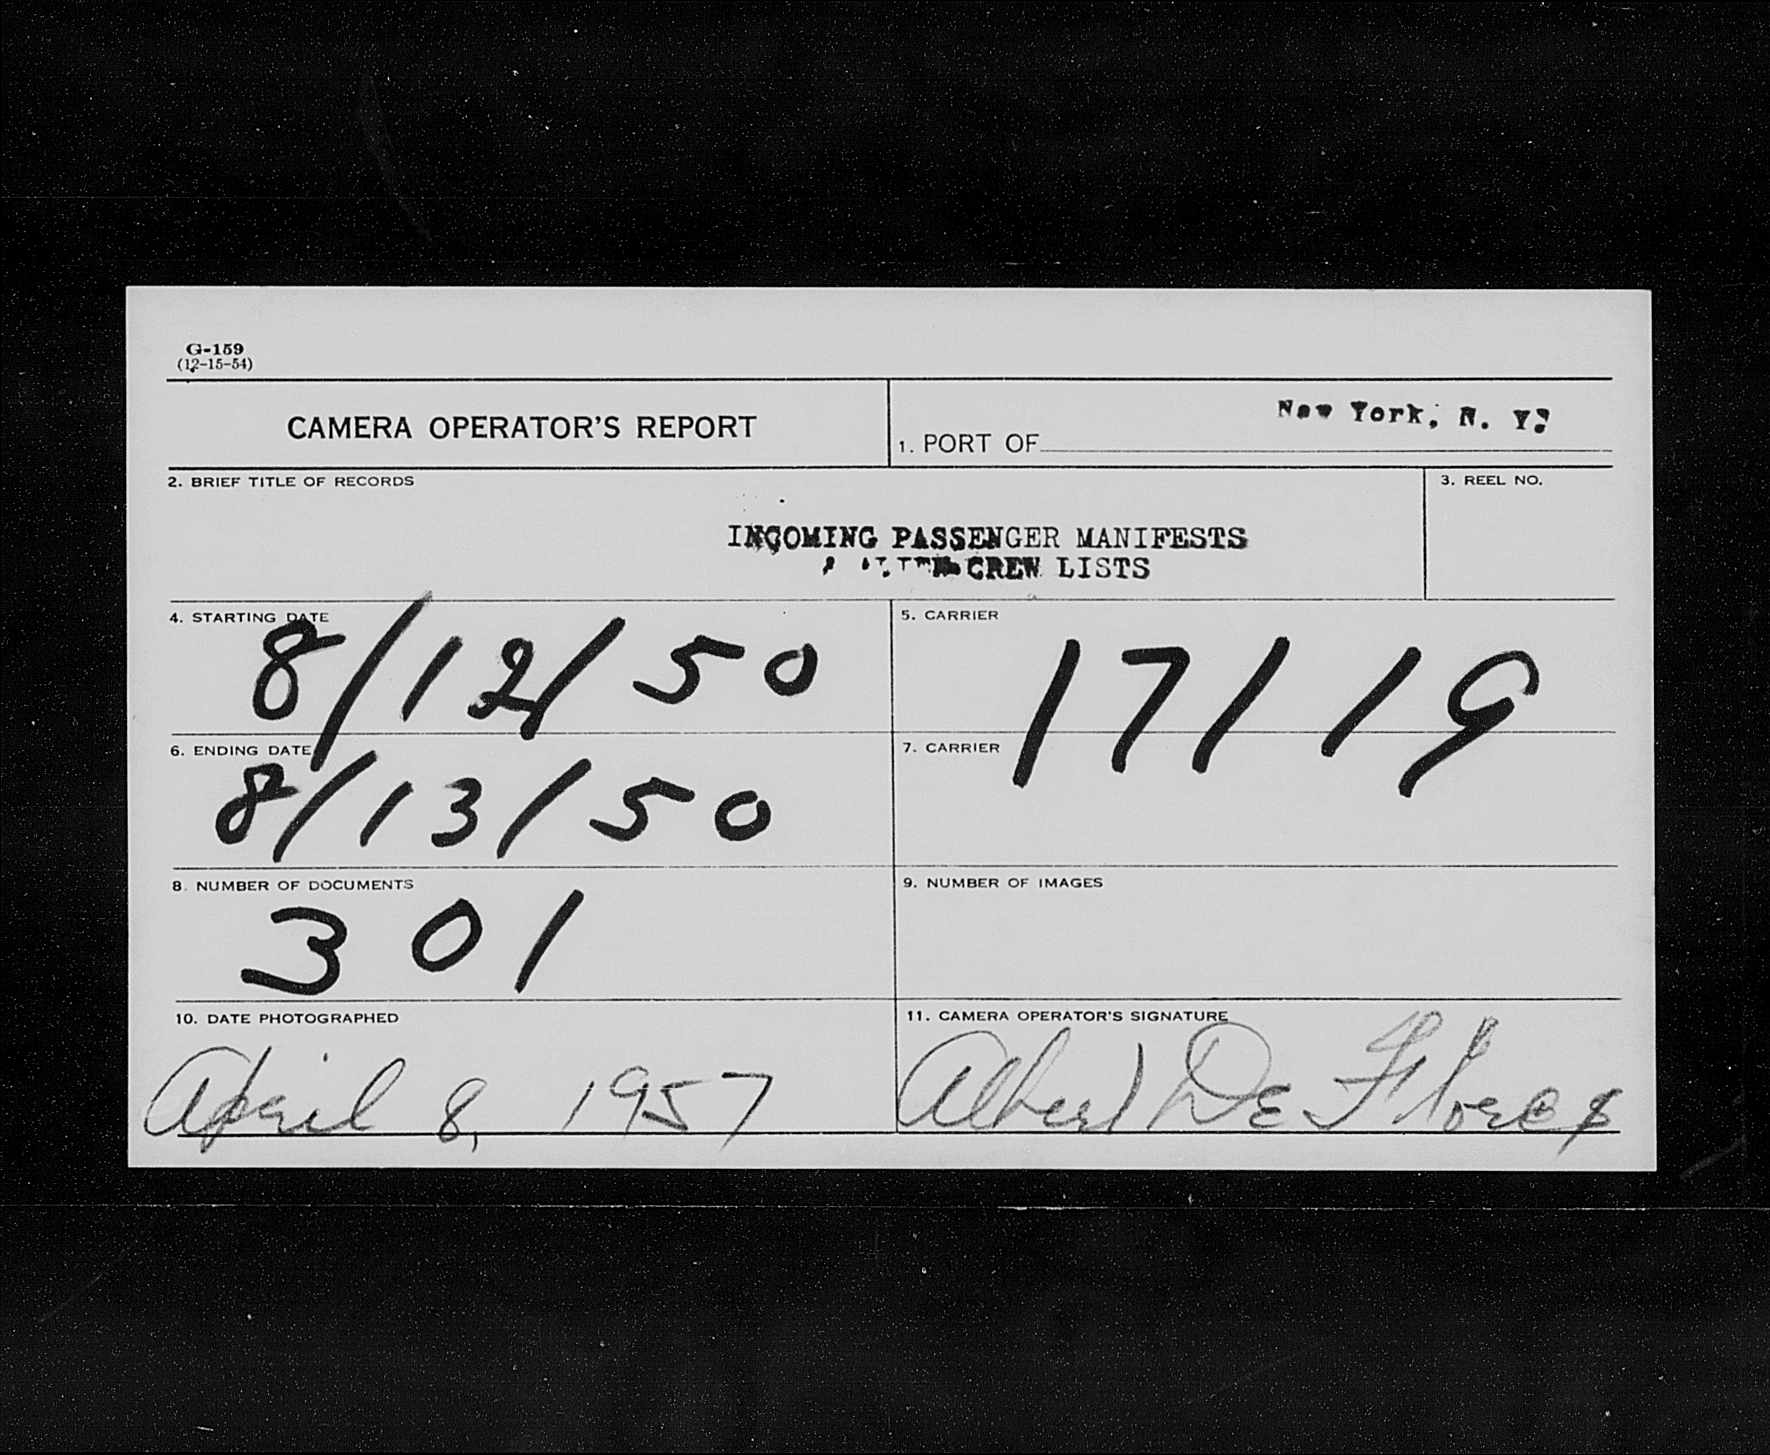 G-159
(12-15-54)
CAMERA OPERATOR'S REPORT
1. PORT OF New York, N. Y.
2. BRIEF TITLE OF RECORDS
3. REEL NO.
INCOMING PASSENGER MANIFESTS
CREW LISTS
4. STARTING DATE
8/12/50
5. CARRIER
17119
6. ENDING DATE
8/13/50
7. CARRIER
8. NUMBER OF DOCUMENTS
301
9. NUMBER OF IMAGES
10. DATE PHOTOGRAPHED
April 8, 1957
11. CAMERA OPERATOR'S SIGNATURE
Albert De Flores